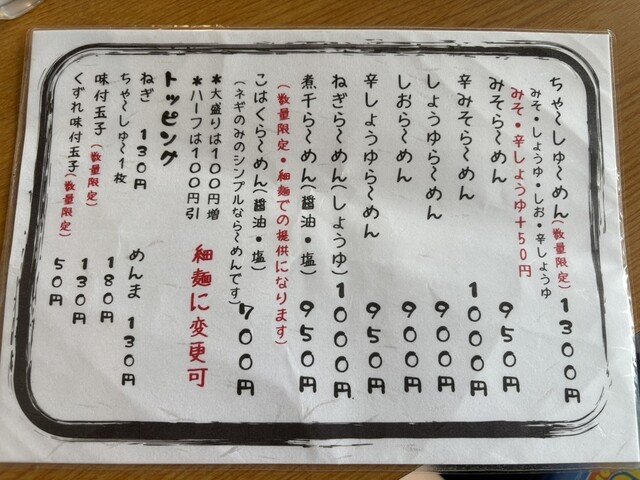 ちゃ～しゅ～めん(数量限定)1300円
みそ・しょうゆ・しお・辛しょうゆ
みそ・辛しょうゆ+50円
みそら～めん 950円
辛みそら～めん 1000円
しょうゆら～めん 900円
しおら～めん 900円
辛しょうゆら～めん 950円
ねぎら～めん(しょうゆ)1000円
煮干ら～めん(醤油・塩) 950円
(数量限定・細麺での提供になります)
こはくら～めん(醤油・塩) 700円
(ネギのみのシンプルなら～めんです)
*大盛りは100円増
*ハーフは100円引
細麺に変更可
トッピング
ねぎ 130円
めんま 130円
ちゃ～しゅ～1枚 180円
味付玉子(数量限定) 130円
くずれ味付玉子(数量限定) 50円